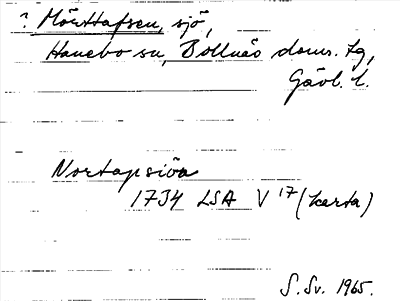 ? Mörttapsen, sjö,
Hanebo sn, Bollnäs doms. tg,
Gävl. l.
Nortapsiöa
1734 LSA V 17 (karta)
S. Sv. 1965.